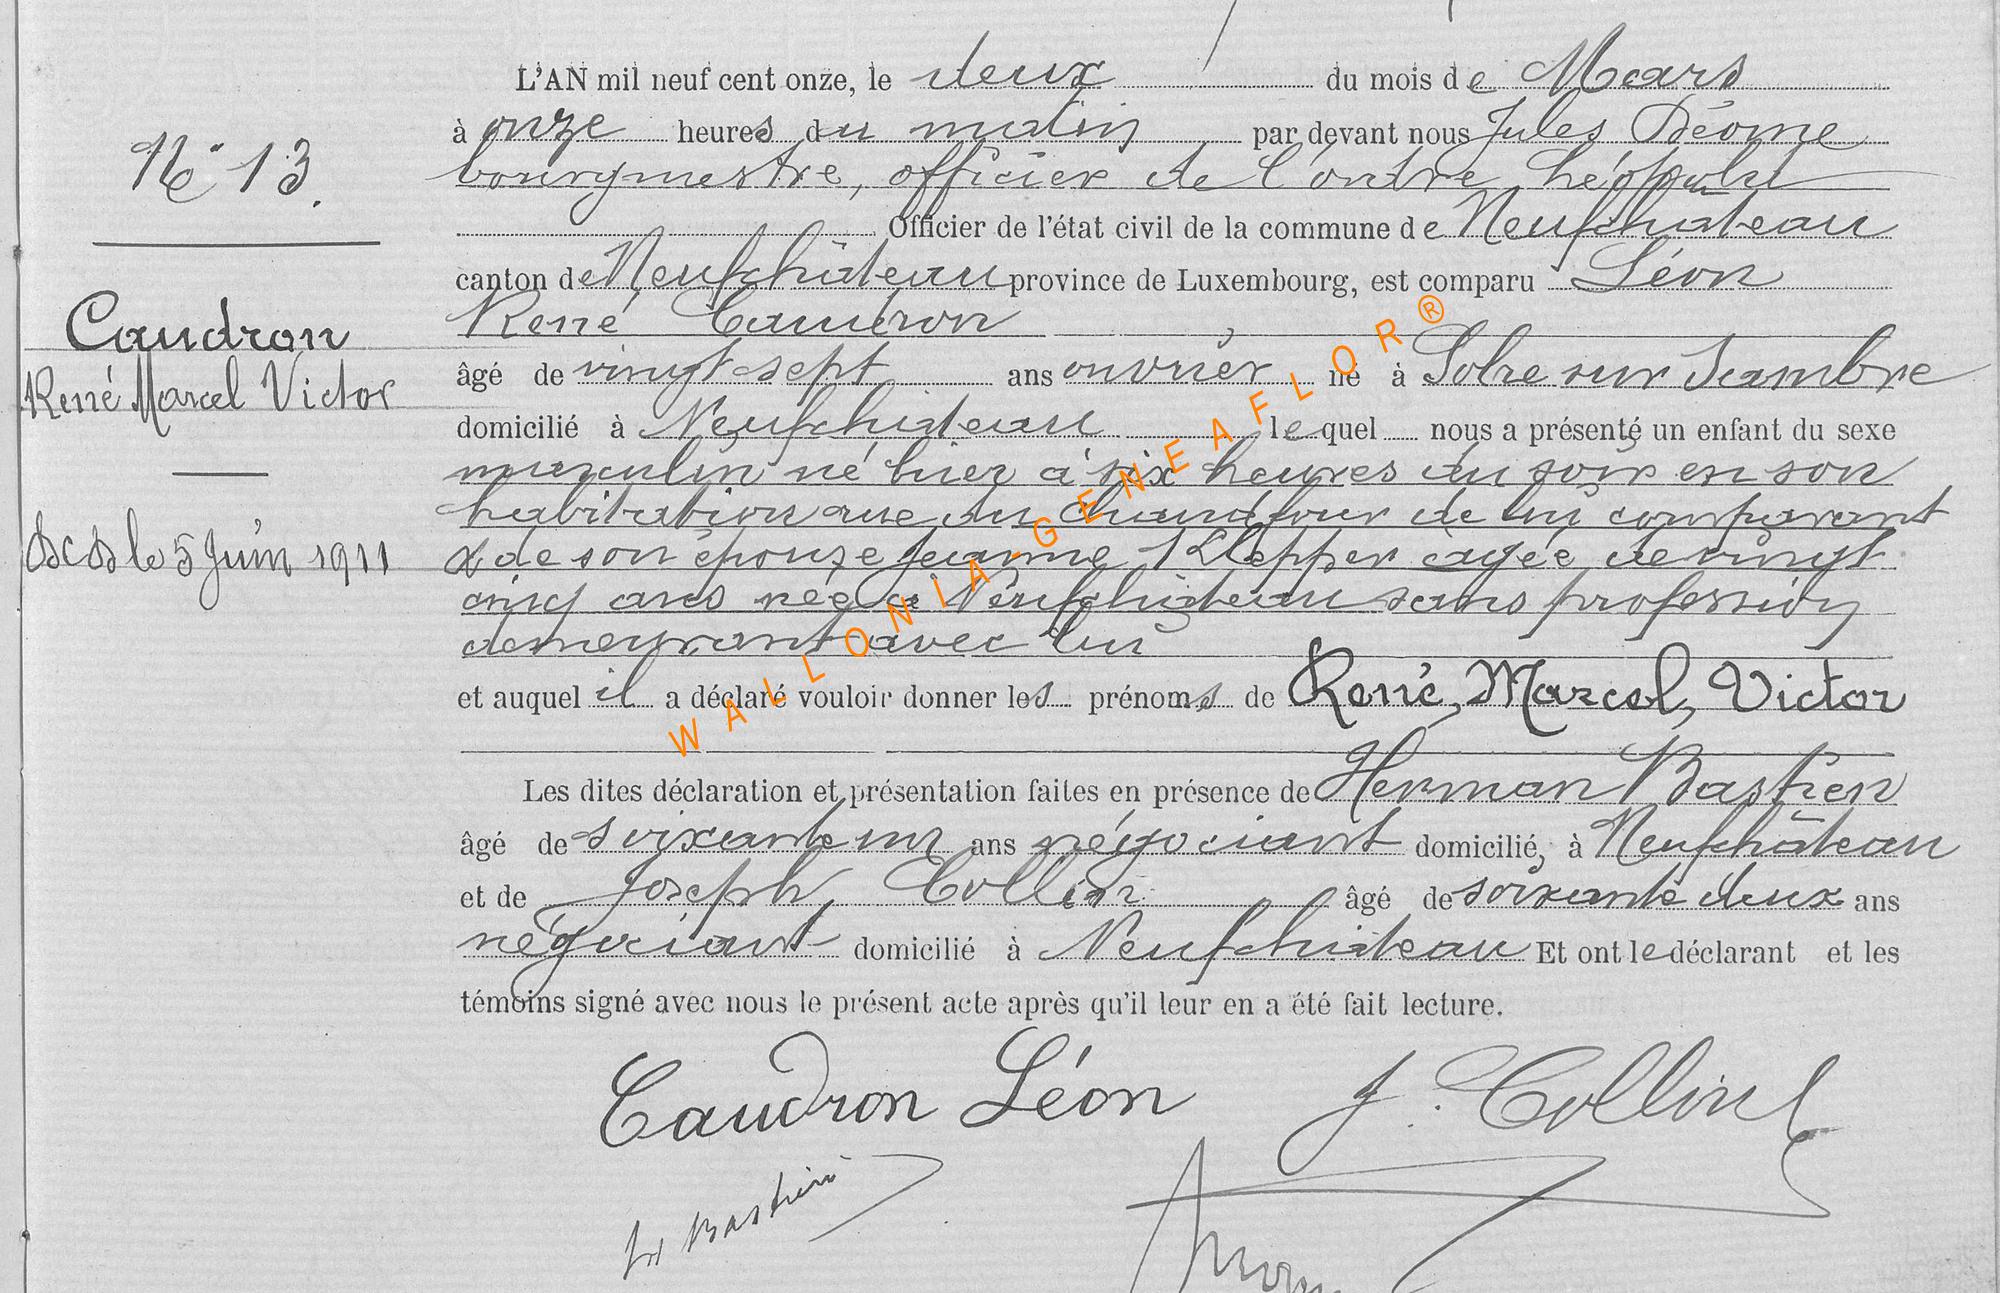 L'AN mil neuf cent onze, le deux du mois de Mars
à onze heures du matin par devant nous Jules Déome
bourgmestre, officier de l'ordre Léopold
Officier de l'état civil de la commune de Neufchâteau
canton de Neufchâteau province de Luxembourg, est comparu Léon
René Caudron
âgé de vingt sept ans ouvrier né à Solre sur Sambre
domicilié à Neufchâteau lequel nous a présenté un enfant du sexe
masculin né hier à six heures du soir en son
habitation rue du Chaudfour de lui comparant
& de son épouse Jeanne Klepper agée de vingt
cinq ans née à Neufchâteau sans profession
demeurant avec lui
et auquel il a déclaré vouloir donner les prénoms de René, Marcel, Victor
Les dites déclaration et présentation faites en présence de Herman Bastien
âgé de soixante un ans négociant domicilié, à Neufchâteau
et de Joseph Collin âgé de soixante deux ans
négociant domicilié à Neufchâteau Et ont le déclarant et les
témoins signé avec nous le présent acte après qu'il leur en a été fait lecture.
Caudron Léon J. Collin
H Bastien
No 13.
Caudron
René Marcel Victor
Dcd le 5 Juin 1911
WALLONIA-GENEAFLOR®